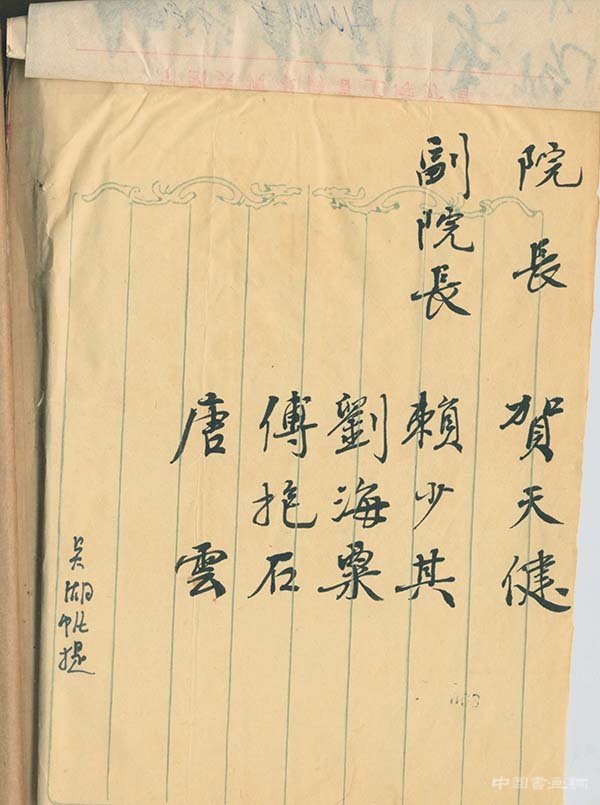 院長 賀天健
副院長 賴少其
劉海粟
傅抱石
唐雲
吴湖帆提
中国書画網